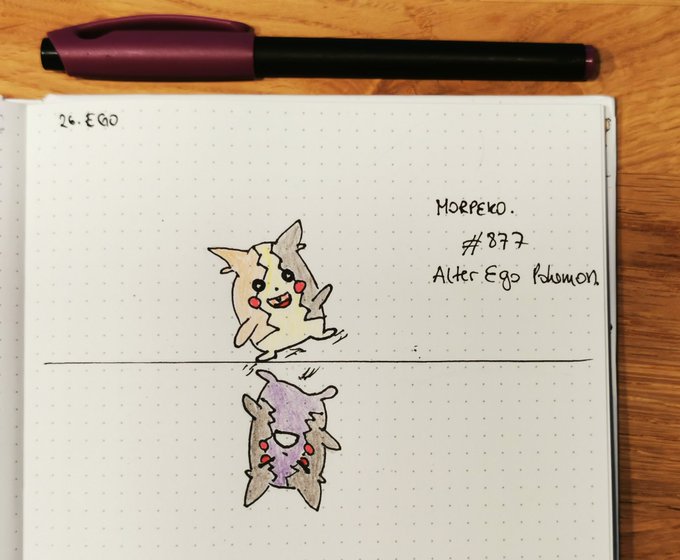 26. EGO
MORPEKO.
#877
Alter Ego Pokemon.